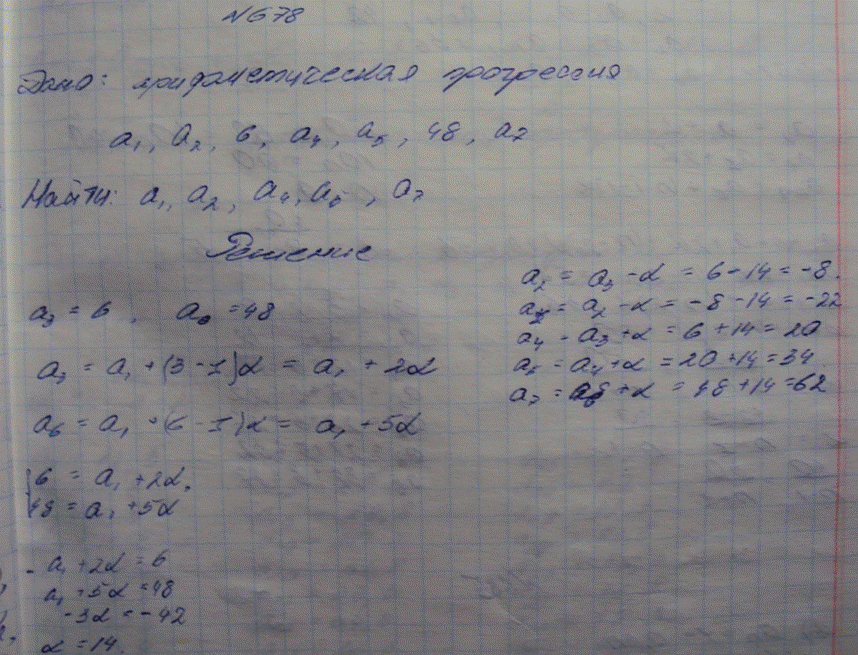 №678
Дано: арифметическая прогрессия
a₁, a₂, 6, a₄, a₅, 48, a₇
Найти: a₁, a₂, a₄, a₅, a₇
Решение
a₃ = 6, a₆ = 48
a₃ = a₁ + (3 - 1)d = a₁ + 2d
a₆ = a₁ + (6 - 1)d = a₁ + 5d
{6 = a₁ + 2d,
{48 = a₁ + 5d
- a₁ + 2d = 6
a₁ + 5d = 48
-3d = -42
d = 14.
a₂ = a₃ - d = 6 - 14 = -8.
a₁ = a₂ - d = -8 - 14 = -22
a₄ = a₃ + d = 6 + 14 = 20
a₅ = a₄ + d = 20 + 14 = 34
a₇ = a₆ + d = 48 + 14 = 62